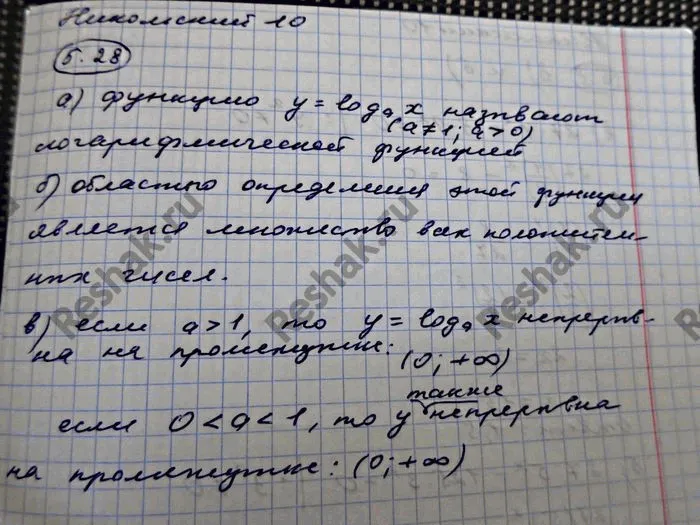 Никольский 10
5.28
а) функцию y = logₐ x называют
(a ≠ 1; a > 0)
логарифмической функцией
б) областью определения этой функции
является множество всех положитель-
ных чисел.
в) если a > 1, то y = logₐ x непрерыв-
на на промежутке: (0; +∞)
также
если 0 < a < 1, то y непрерывна
на промежутке: (0; +∞)
Reshak.ru
Reshak.ru
Reshak.ru